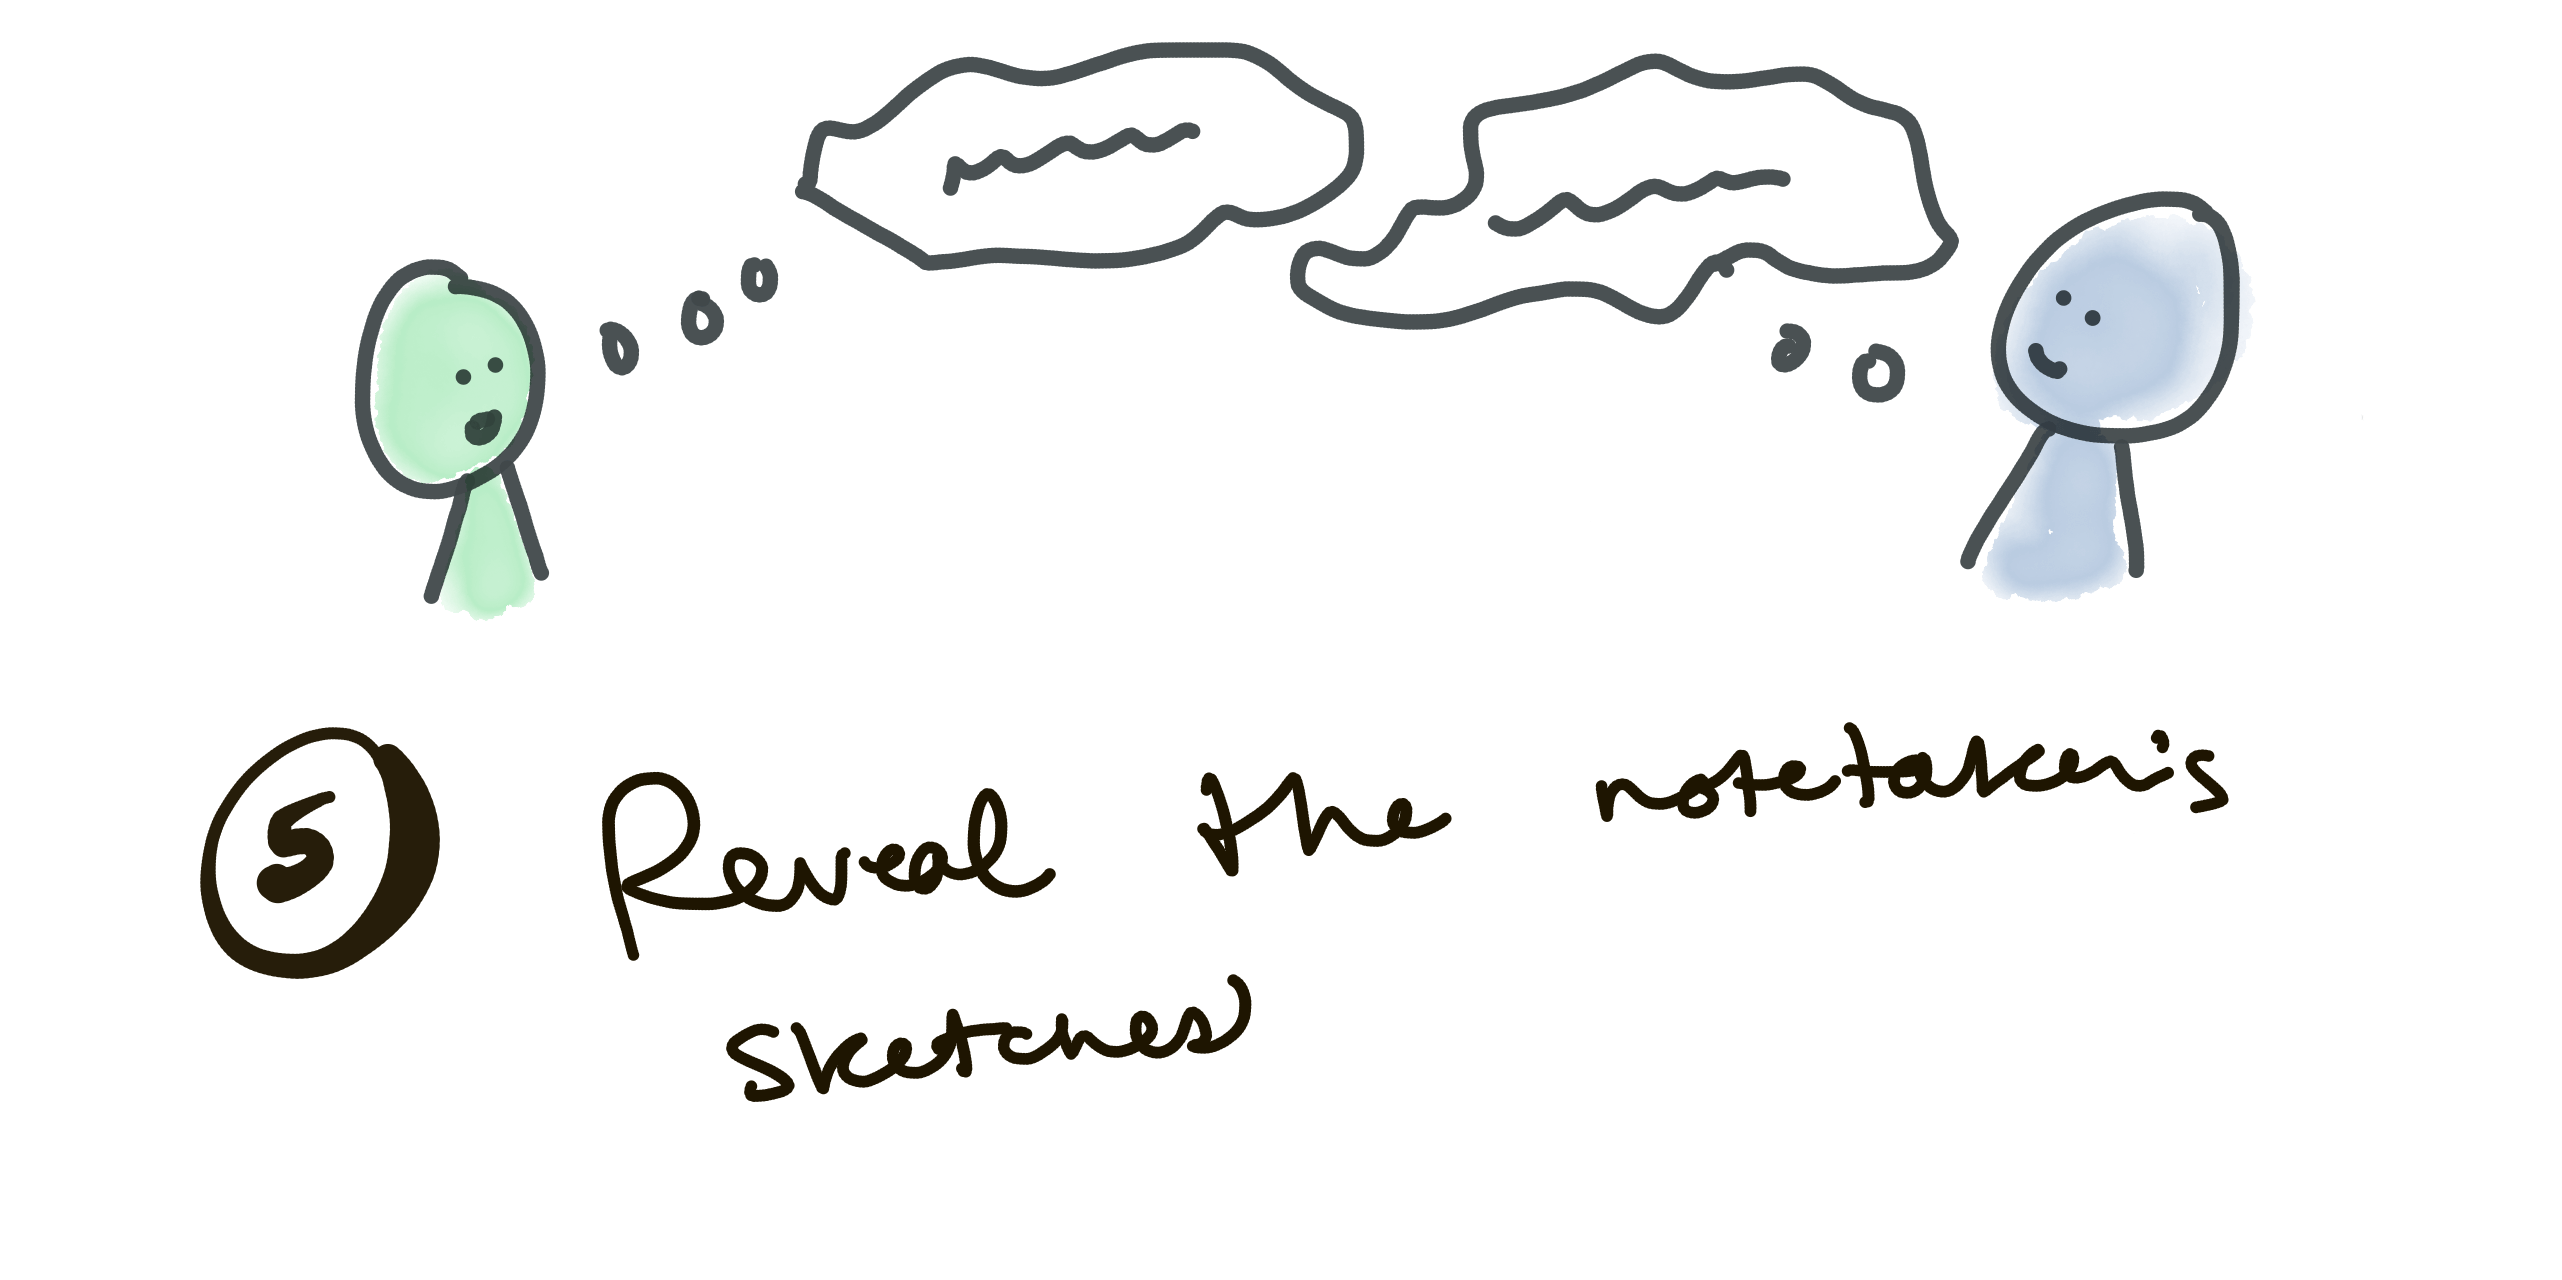 5 Reveal the notetaker's
sketches